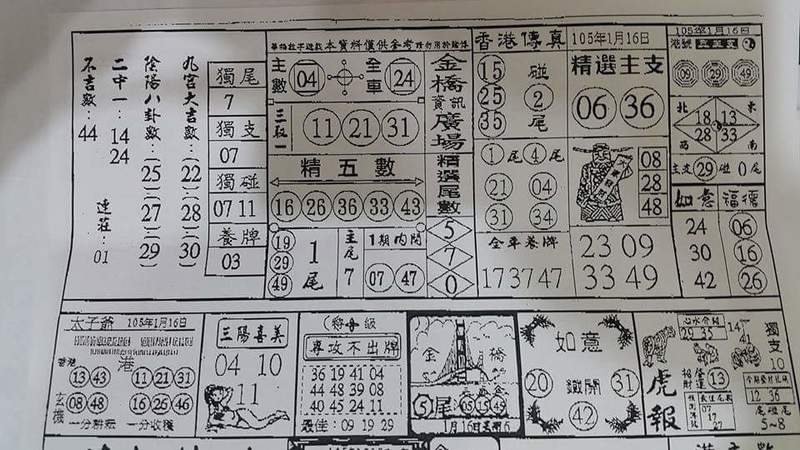 九宮大吉數：(22)(28)(30)
陰陽八卦數：(25)(27)(29)
二中一：14 24 連莊：01
不吉數：44
獨尾
7
獨支
07
獨碰
07 11
養牌
03
本資料僅供參考
主數 04 全車 24
三取一
11 21 31
精五數
16 26 36 33 43
19
29
49
1尾
主尾7
1期內開
07 47
金橋資訊廣場
精選尾數
5
7
0
香港傳真 105年1月16日
15 碰
25 2
35 尾
1尾 4尾
21 04
31 34
全車養牌
17 37 47
精選主支
06 36
08
28
48
23 09
33 49
105年1月16日
港號
09 29 49
北 東
18 13
28 33
西 南
主支 29 碰 0尾
如意 福德
24 06
30 16
42 26
太子爺 105年1月16日
香港
港
13 43 11 21 31
玄機
08 48 16 26 46
一分耕耘 一分收穫
三陽喜美
04 10
11
專攻不出牌
36 19 41 04
44 48 39 08
40 45 24 11
最佳：09 19 29
金橋
5尾 05 15 49
1月16日星期6
如意
20 鐵開 31
42
心水公開
29 35
14
41
獨支
10
虎報
招財
進運
13
07
17
27
12 36
尾碰尾
5~8